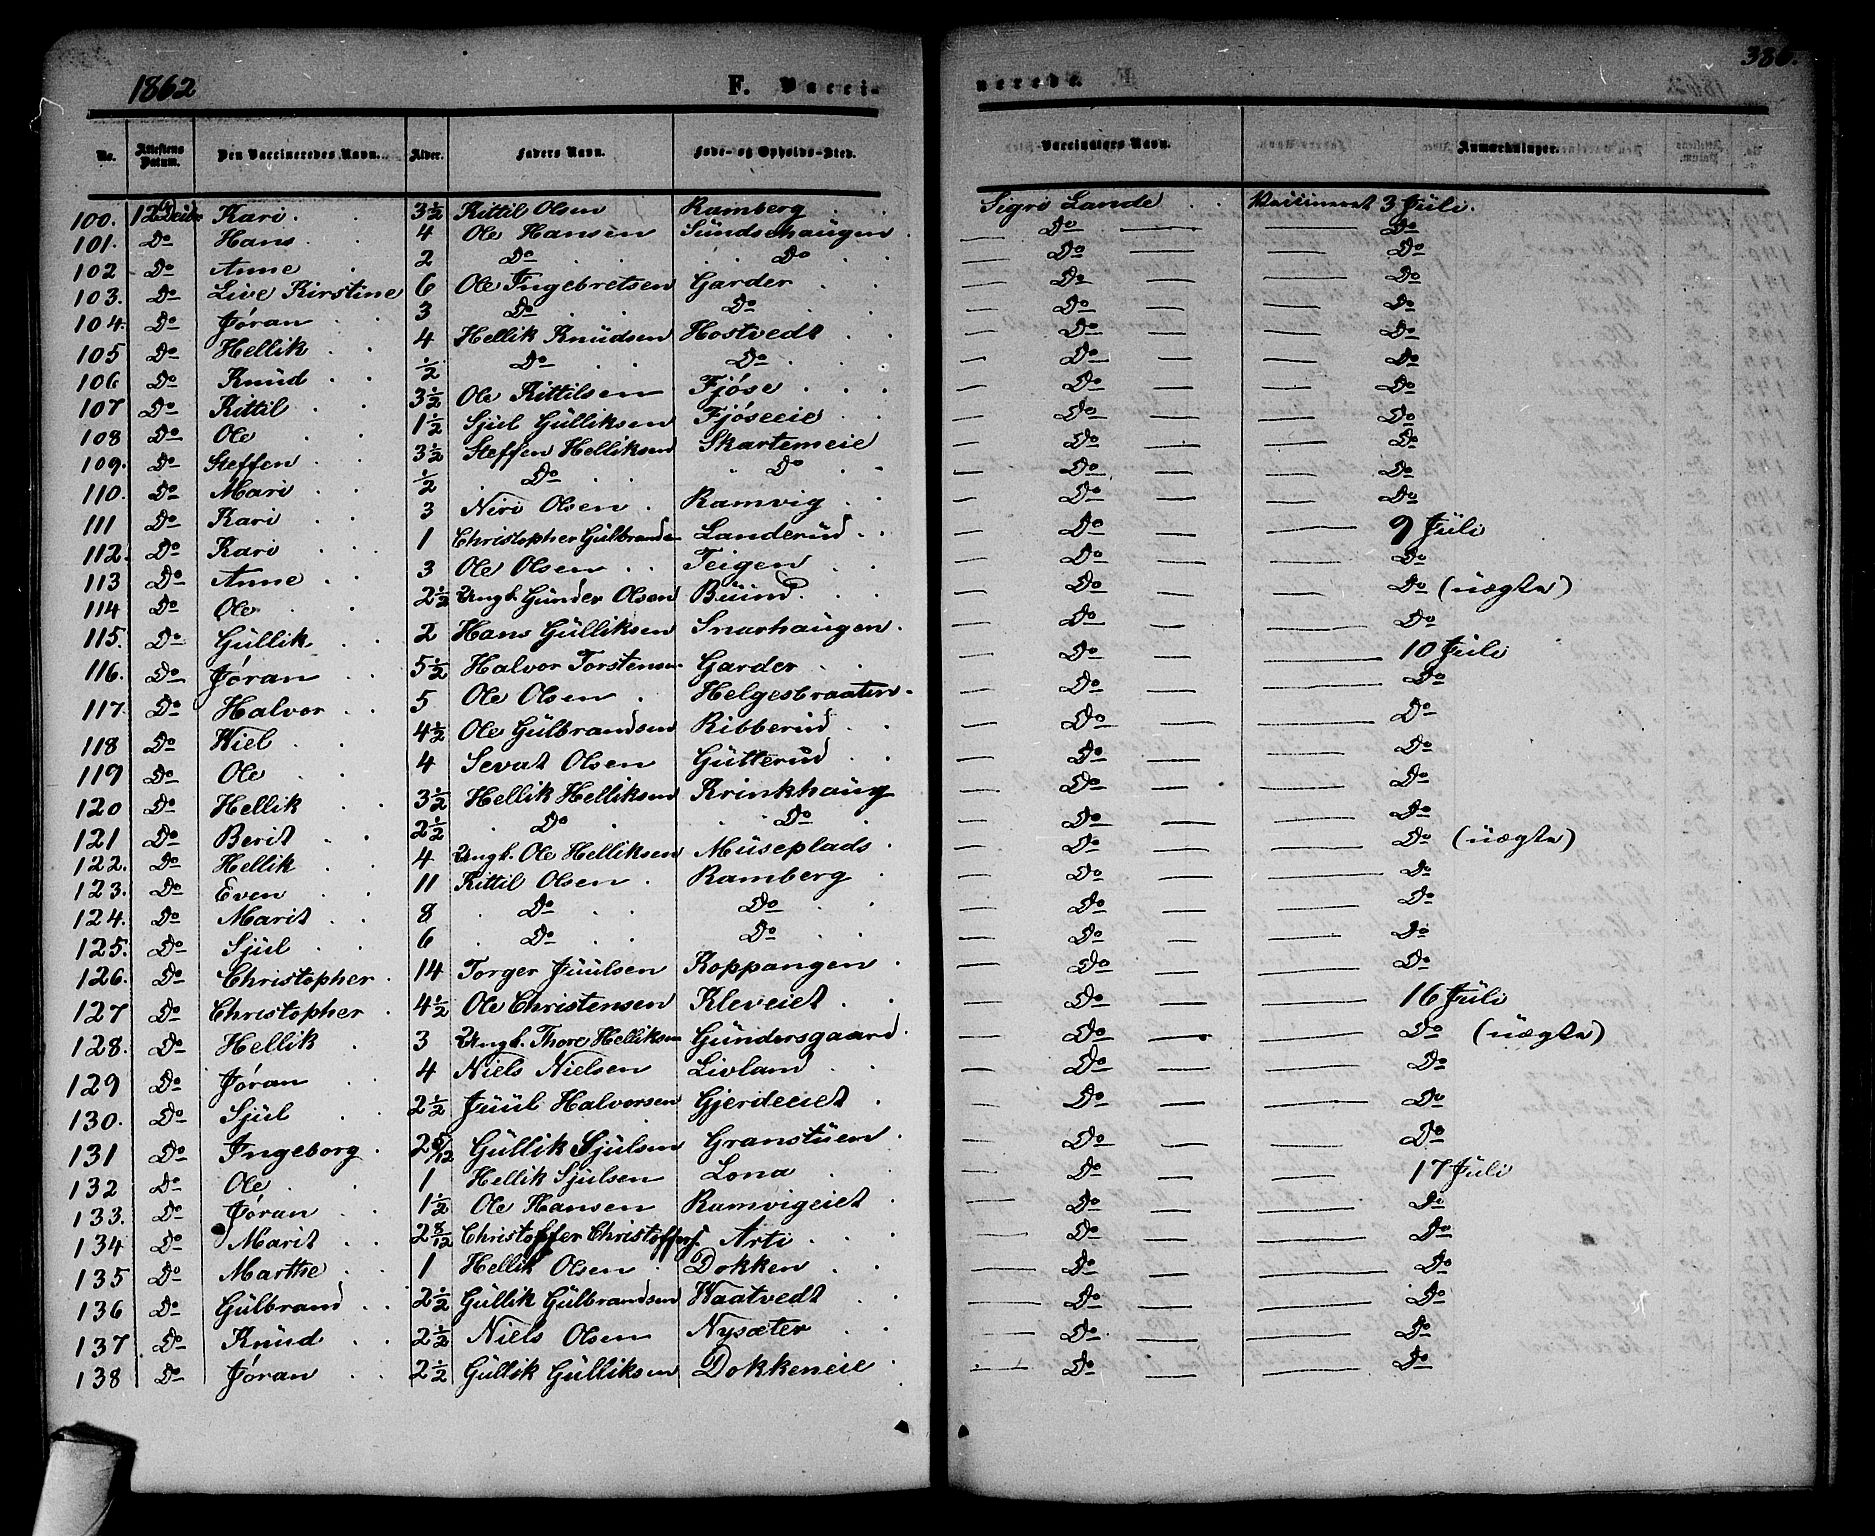 1862 F. Vacci- nerede 386.
No. Attestens Datum. Den Vaccineredes Navn. Alder. Faders Navn. Føde- og Opholds-Sted. Vaccinators Navn. Anmærkninger.
100. 12 Kari 3½ Kittil Olsen Ramberg Sigri Lande Vaccineret 3 Juli.
101. Do Hans 4 Ole Hansen Sundsehaugen — Do — — Do
102 Do Anne 2 Do Do — Do — — Do
103. Do Live Kirstine 6 Ole Ingebretsen Garder — Do — — Do
104. Do Jøran 3 Do Do — Do — — Do
105 Do Hellik 4 Hellik Knudsen Hostvedt — Do — — Do
106 Do Knud ½ Do Do — Do — — Do
107 Do Kittil 3½ Ole Kittilsen Fjøse — Do — — Do
108 Do Ole 1½ Sjul Gulliksen Fjøseeie — Do — — Do
109. Do Steffen 3½ Steffen Helliksen Skartemeie — Do — — Do
110. Do Mari ½ Do Do — Do — — Do
111 Do Kari 3 Niri Olsen Ramvig — Do — — Do
112. Do Kari 1 Christopher Gulbrands Landerud — Do — — 9 Juli
113 Do Anne 3 Ole Olsen Teigen — Do — — Do
114 Do Ole 2½ Ungk. Gunder Olsen Buind. — Do — — Do (uægte)
115. Do Gullik 2 Hans Gulliksen Snarhaugen — Do — — Do
116. Do Jøran 5½ Halvor Torstensen Garder — Do — — 10 Juli
117. Do Halvor 5 Ole Olsen Helgesbraaten — Do — — Do
118 Do Wiel 4½ Ole Gulbrandsen Ribberud — Do — — Do
119 Do Ole 4 Sevat Olsen Gutterud — Do — — Do
120 Do Hellik 3½ Hellik Helliksen Krinkhaug — Do — — Do
121 Do Berit 2½ Do Do — Do — — Do
122. Do Hellik 4 Ungk. Ole Helliksen Museplads — Do — — Do (uægte)
123. Do Even 11 Kittil Olsen Ramberg — Do — — Do
124. Do Marit 8 Do Do — Do — — Do
125. Do Sjul 6 Do Do — Do — — Do
126. Do Christopher 14 Torger Juulsen Koppangen — Do — — Do
127 Do Christopher 4½ Ole Christensen Kleveiet — Do — — 16 Juli
128. Do Hellik 3 Ungk. Thore Helliksen Gundersgaard — Do — — Do (uægte)
129 Do Jøran 4 Niels Nielsen Livland — Do — — Do
130. Do Sjul 2½ Juul Halvorsen Gjerdeeiet — Do — — Do
131 Do Ingeborg 2 5/12 Gullik Sjulsen Granstuen — Do — — Do
132 Do Ole 1 Hellik Sjulsen Lona — Do — — 17 Juli
133. Do Jøran 1½ Ole Hansen Ramvigeiet — Do — — Do
134 Do Marit 2 8/12 Christoffer Christoffers. Arti — Do — — Do
135 Do Marthe 1 Hellik Olsen Dokken — Do — — Do
136 Do Gulbrand 2½ Gullik Gulbrandsen Waatvedt — Do — — Do
137 Do Knud 2½ Niels Olsen Nysæter — Do — — Do
138 Do Jøran 2½ Gullik Gulliksen Dokkeneie — Do — — Do